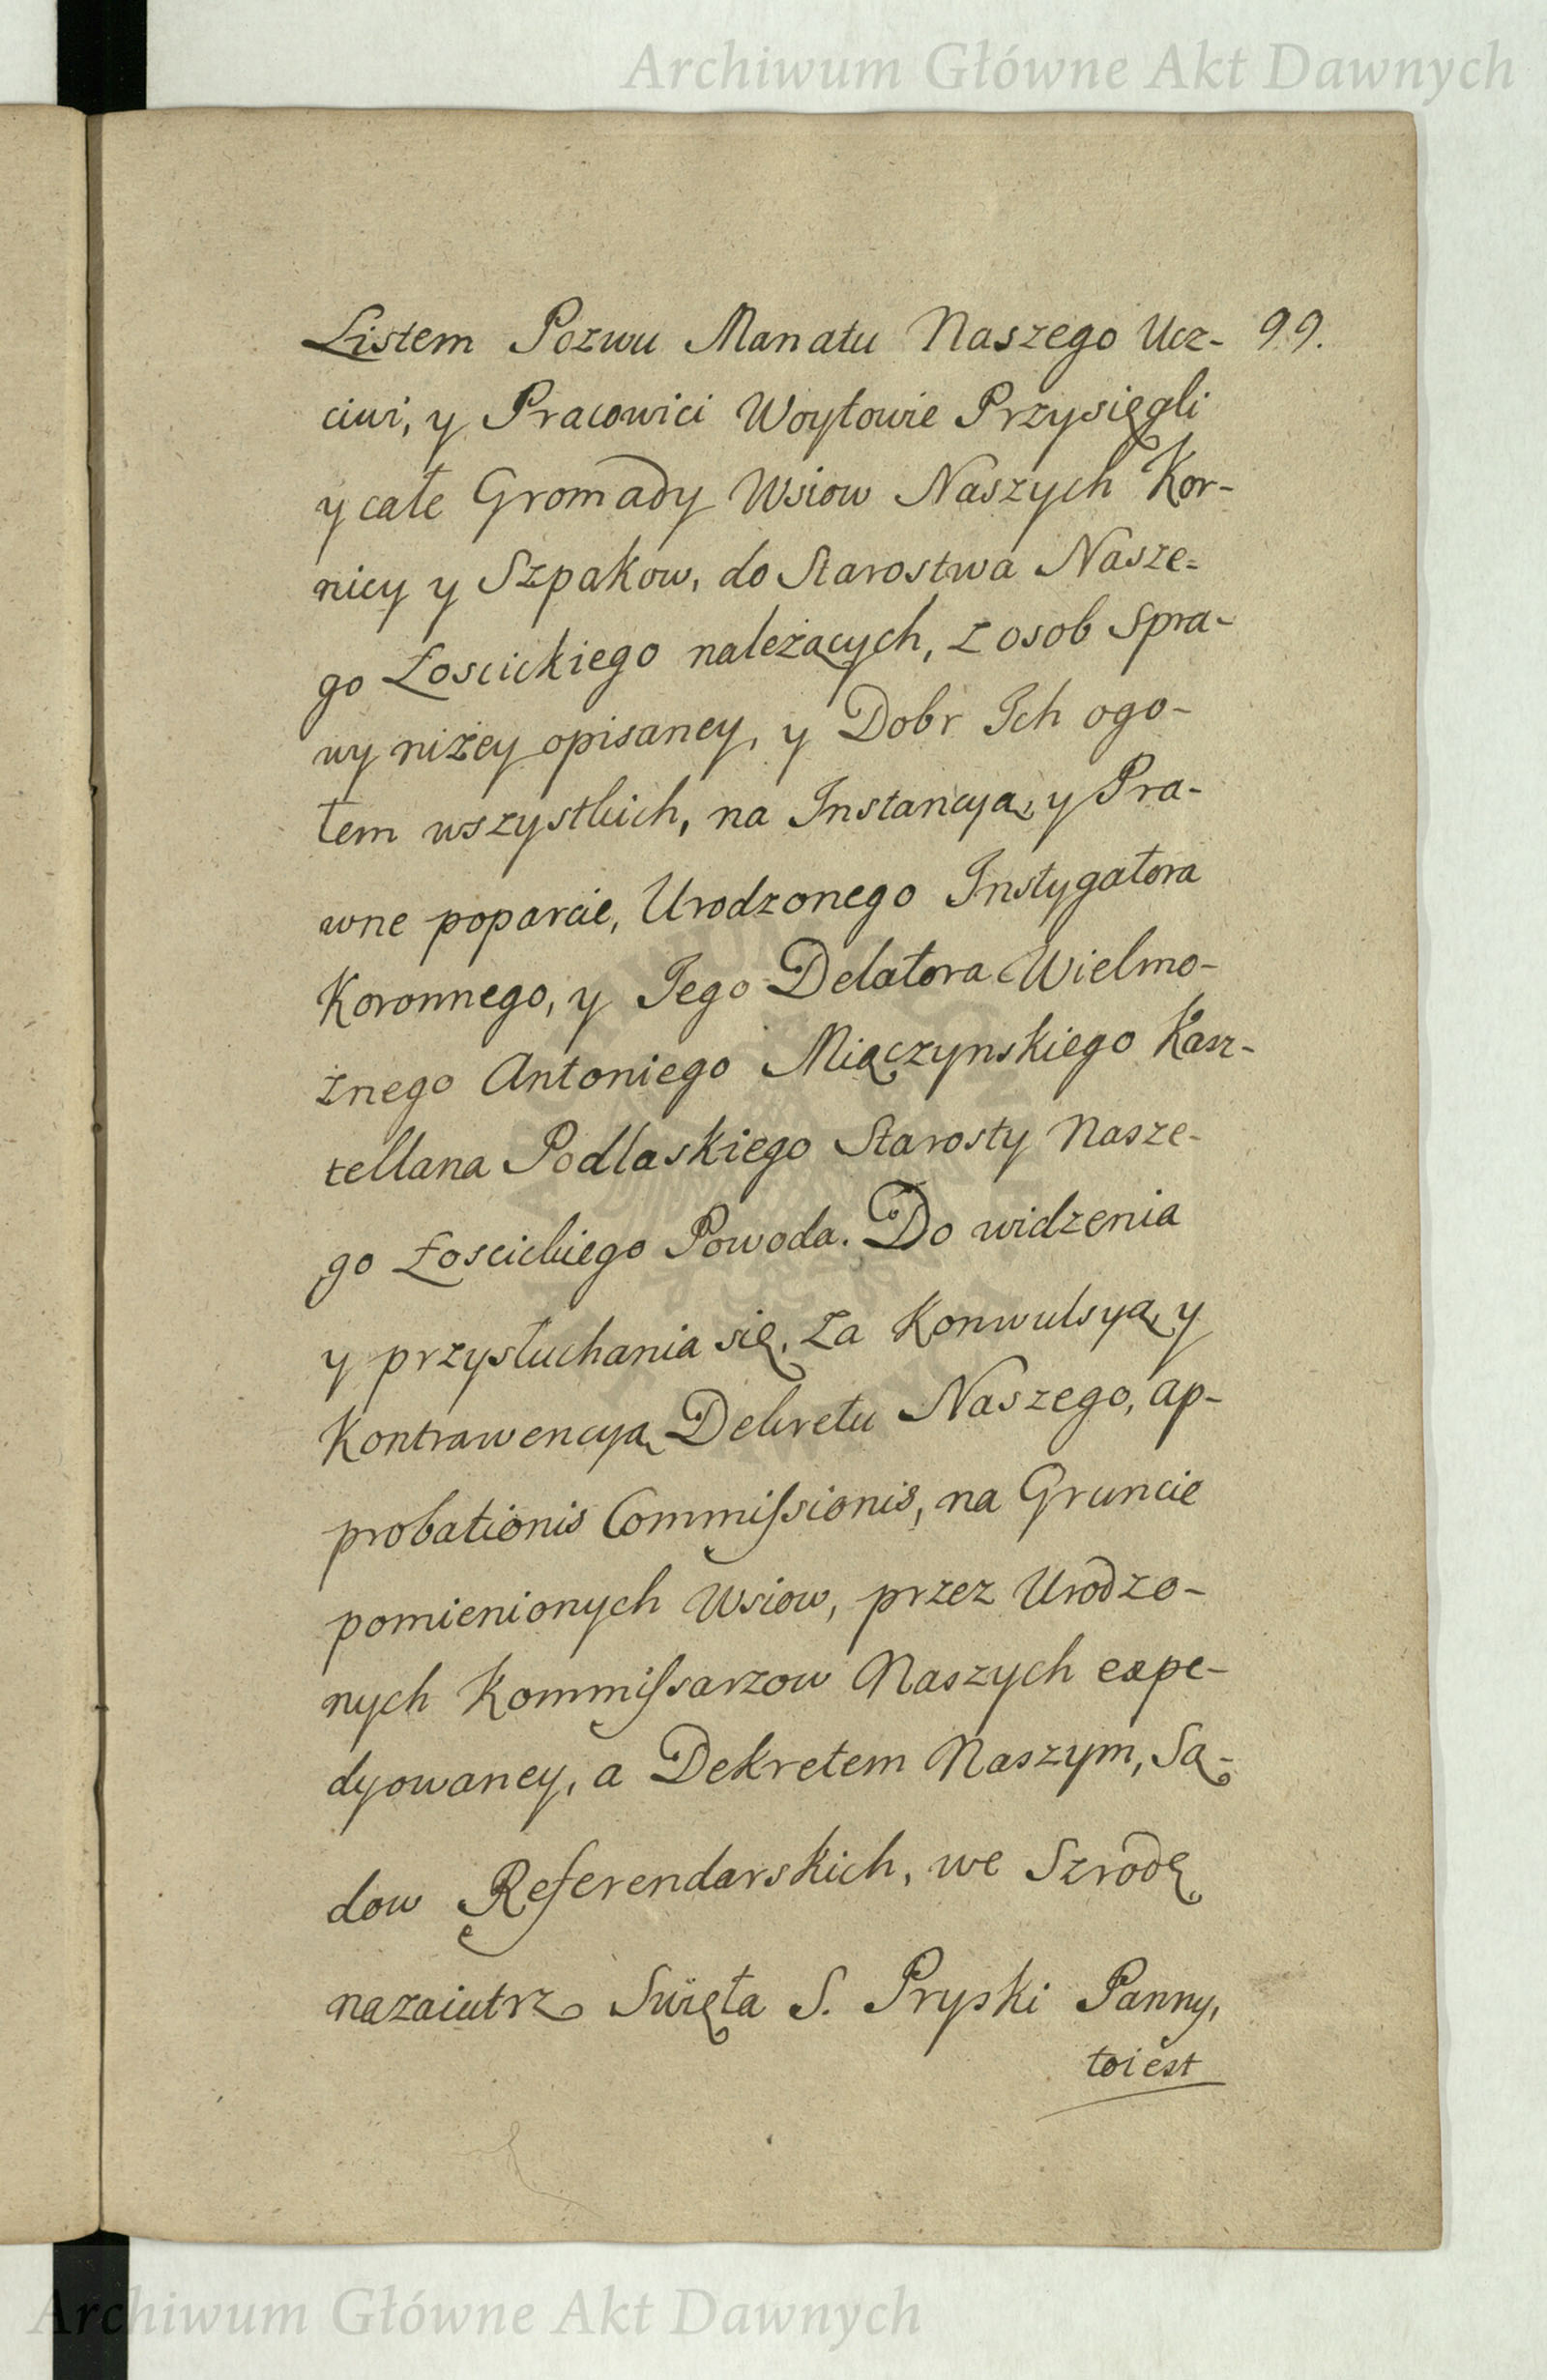 Archiwum Główne Akt Dawnych
Listem Pozwu Manatu Naszego Ucz- 99.
ciwi, y Pracowici Woytowie Przysięgli
y całe Gromady Wsiow Naszych Kor-
nicy y Szpakow, do Starostwa Nasze=
go Łosickiego należących, z osob Spra-
wy niżey opisaney, y Dobr Ich ogo-
łem wszystkich, na Instancyą, y Pra-
wne poparcie, Urodzonego Instygatora
Koronnego, y Jego Delatora Wielmo-
żnego Antoniego Miączynskiego Kasz-
tellana Podlaskiego Starosty Nasze-
go Łoscickiego Powoda. Do widzenia
y przysłuchania się, za Konwulsyą, y
Kontrawencyą Dekretu Naszego, ap-
probationis Commissionis, na Gruncie
pomienionych Wsiow, przez Urodzo-
nych Kommissarzow Naszych expe-
dyowaney, a Dekretem Naszym, Są-
dow Referendarskich, we Szrodę
nazaiutrz Święta S. Pryski Panny,
toiest
Archiwum Główne Akt Dawnych